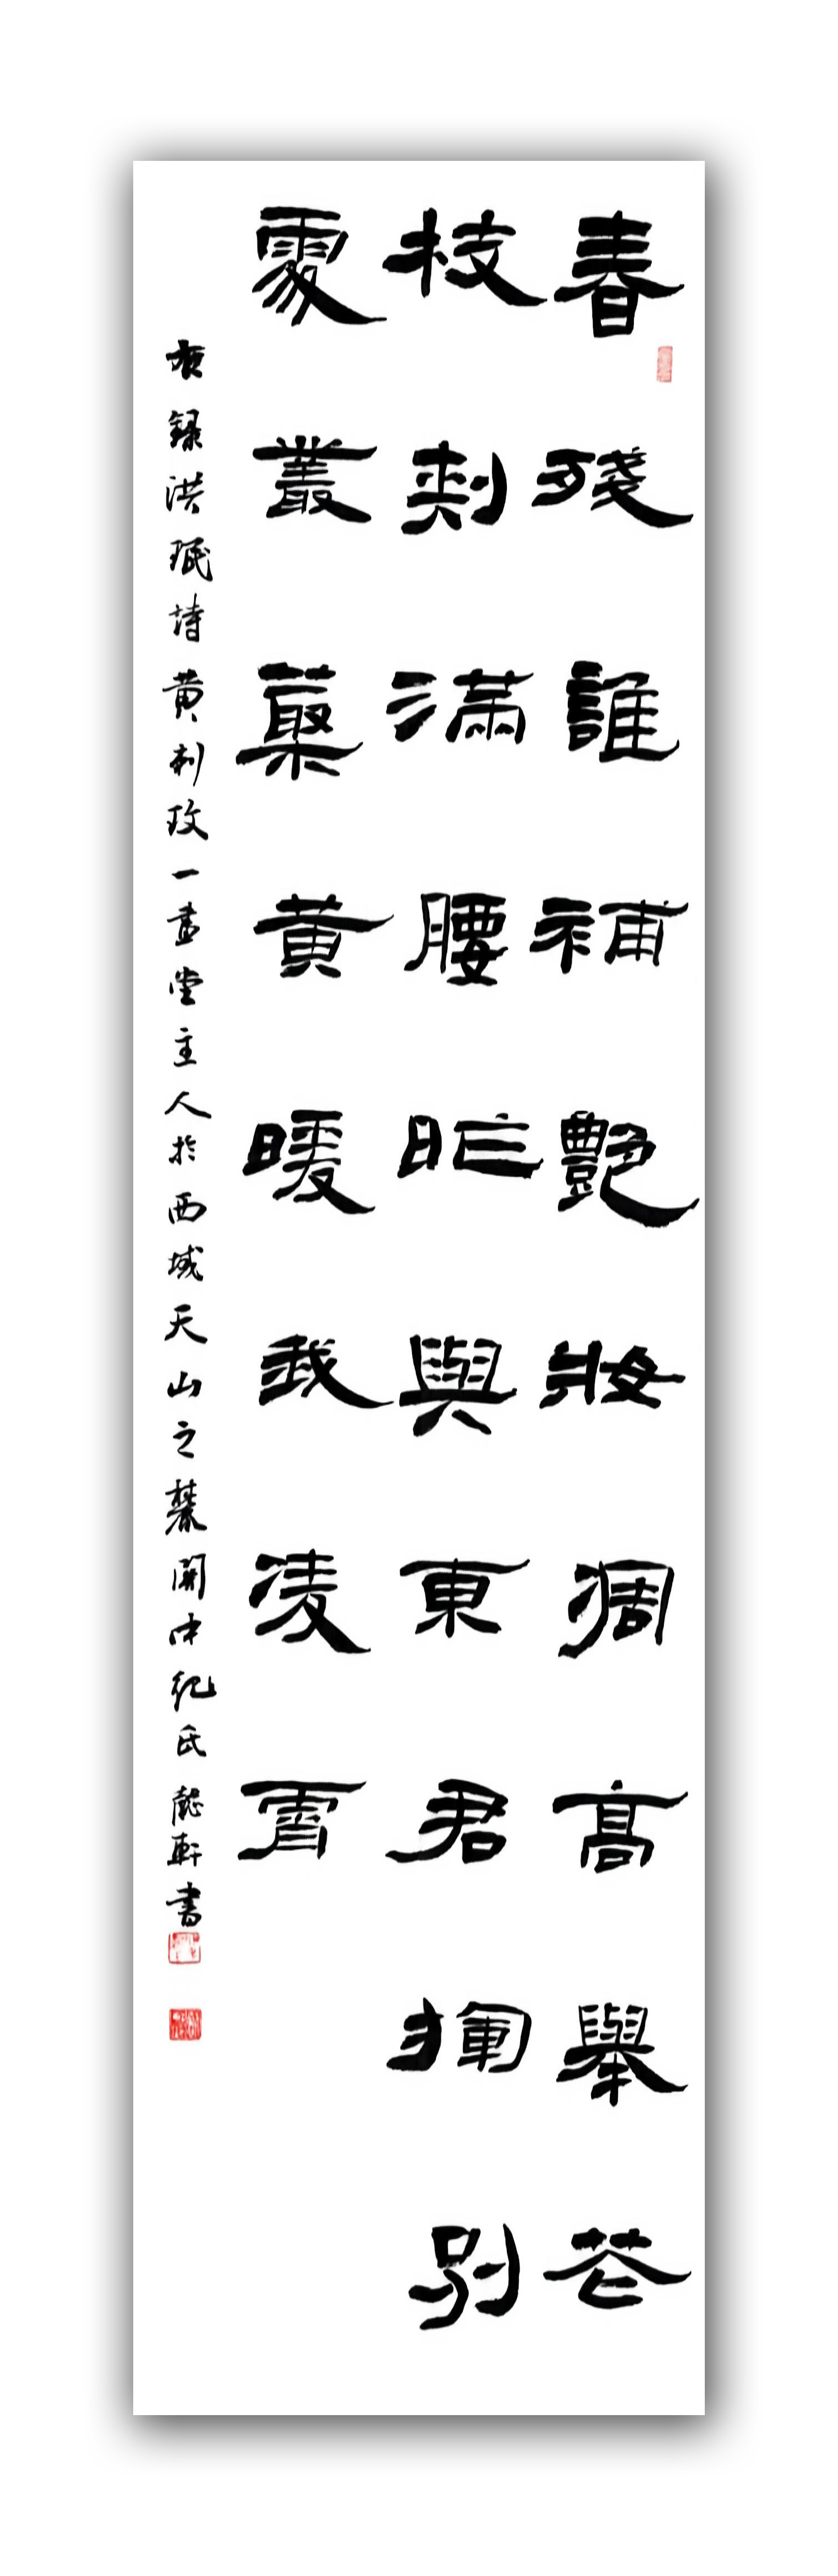 春殘誰補艷妝凋高舉芒
枝刺滿腰昨與東君揮別
處叢藂黃暖我凌霄
右錄洪珉詩黃刺玫一畫堂主人於西域天山之麓關中紀氏懿軒書